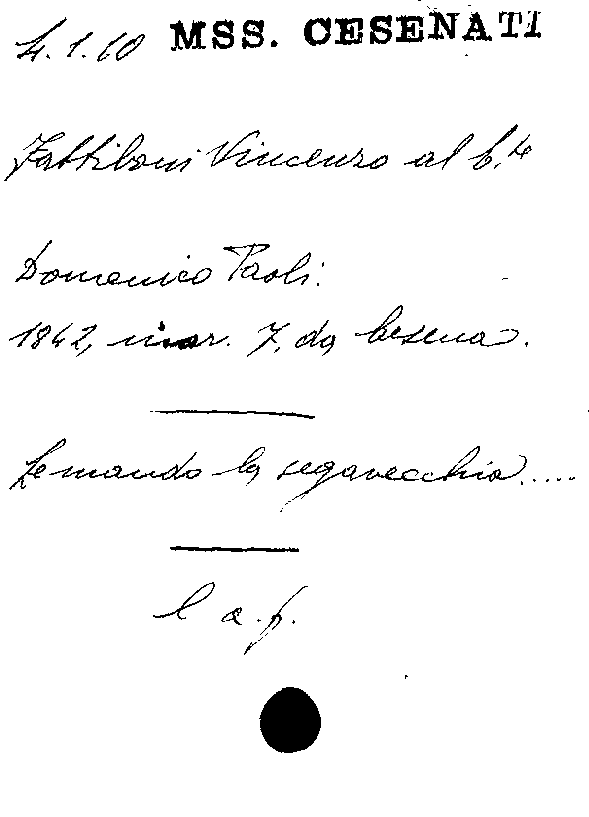 4.1.60 MSS. CESENATI
Fattiboni Vincenzo al C.te
Domenico Paoli.
1842, mar. 7, da Cesena.
Le mando la segavecchia.....
l a.f.